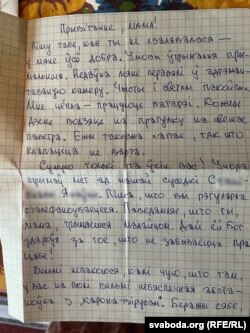 Прывітанне, мама!
Пішу табе, каб ты не хвалявалася —
у мяне ўсё добра. Умовы ўтрымання пры-
мальныя. Нядаўна мяне перавялі у адраман-
таваную камеру. Чысты і светлы пакойчык.
Мне цёпла – працуюць батарэі. Кожны
дзень водзяць на прагулку на свежае
паветра. Ежы таксама хапае, так што
клапаціцца не варта.
Сумую толькі па ўсіх вас! Учора
атрымаў ліст ад нашай суседкі С
Я Піша, што вы рэгулярна
стэлефаноўваецеся. Паведамляе, што ты,
мама, трымаешся малайчом. Дай ёй Бог
здароўя за тое, што не забываецца пра
цябе!
Вельмі непакоюся, калі чую, што там у
вас на волі вельмі небяспечная абста-
ноўка з "карона-вірусам". Беражы сябе
svaboda.org (RFE/RL)